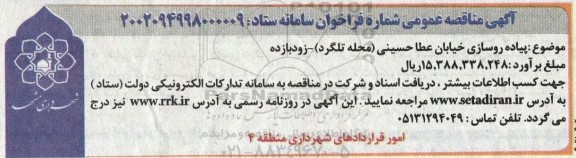 آگهی مناقصه عمومی شماره فراخوان سامانه ستاد: ۲۰۰۲۰۹۴۹۹۸۰۰۰۰۰۹
موضوع: پیاده روسازی خیابان عطا حسینی (محله تلگرد)-زودبازده
مبلغ برآورد: ۱۵,۳۸۸,۳۳۸,۲۴۸ریال
جهت کسب اطلاعات بیشتر ، دریافت اسناد و شرکت در مناقصه به سامانه تدارکات الکترونیکی دولت (ستاد)
به آدرس www.setadiran.ir مراجعه نمایید . این آگهی در روزنامه رسمی به آدرس www.rrk.ir نیز درج
می گردد. تلفن تماس : ۰۵۱۳۱۲۹۴۰۴۹
امور قراردادهای شهرداری منطقه ۴
شهرداری مشهد